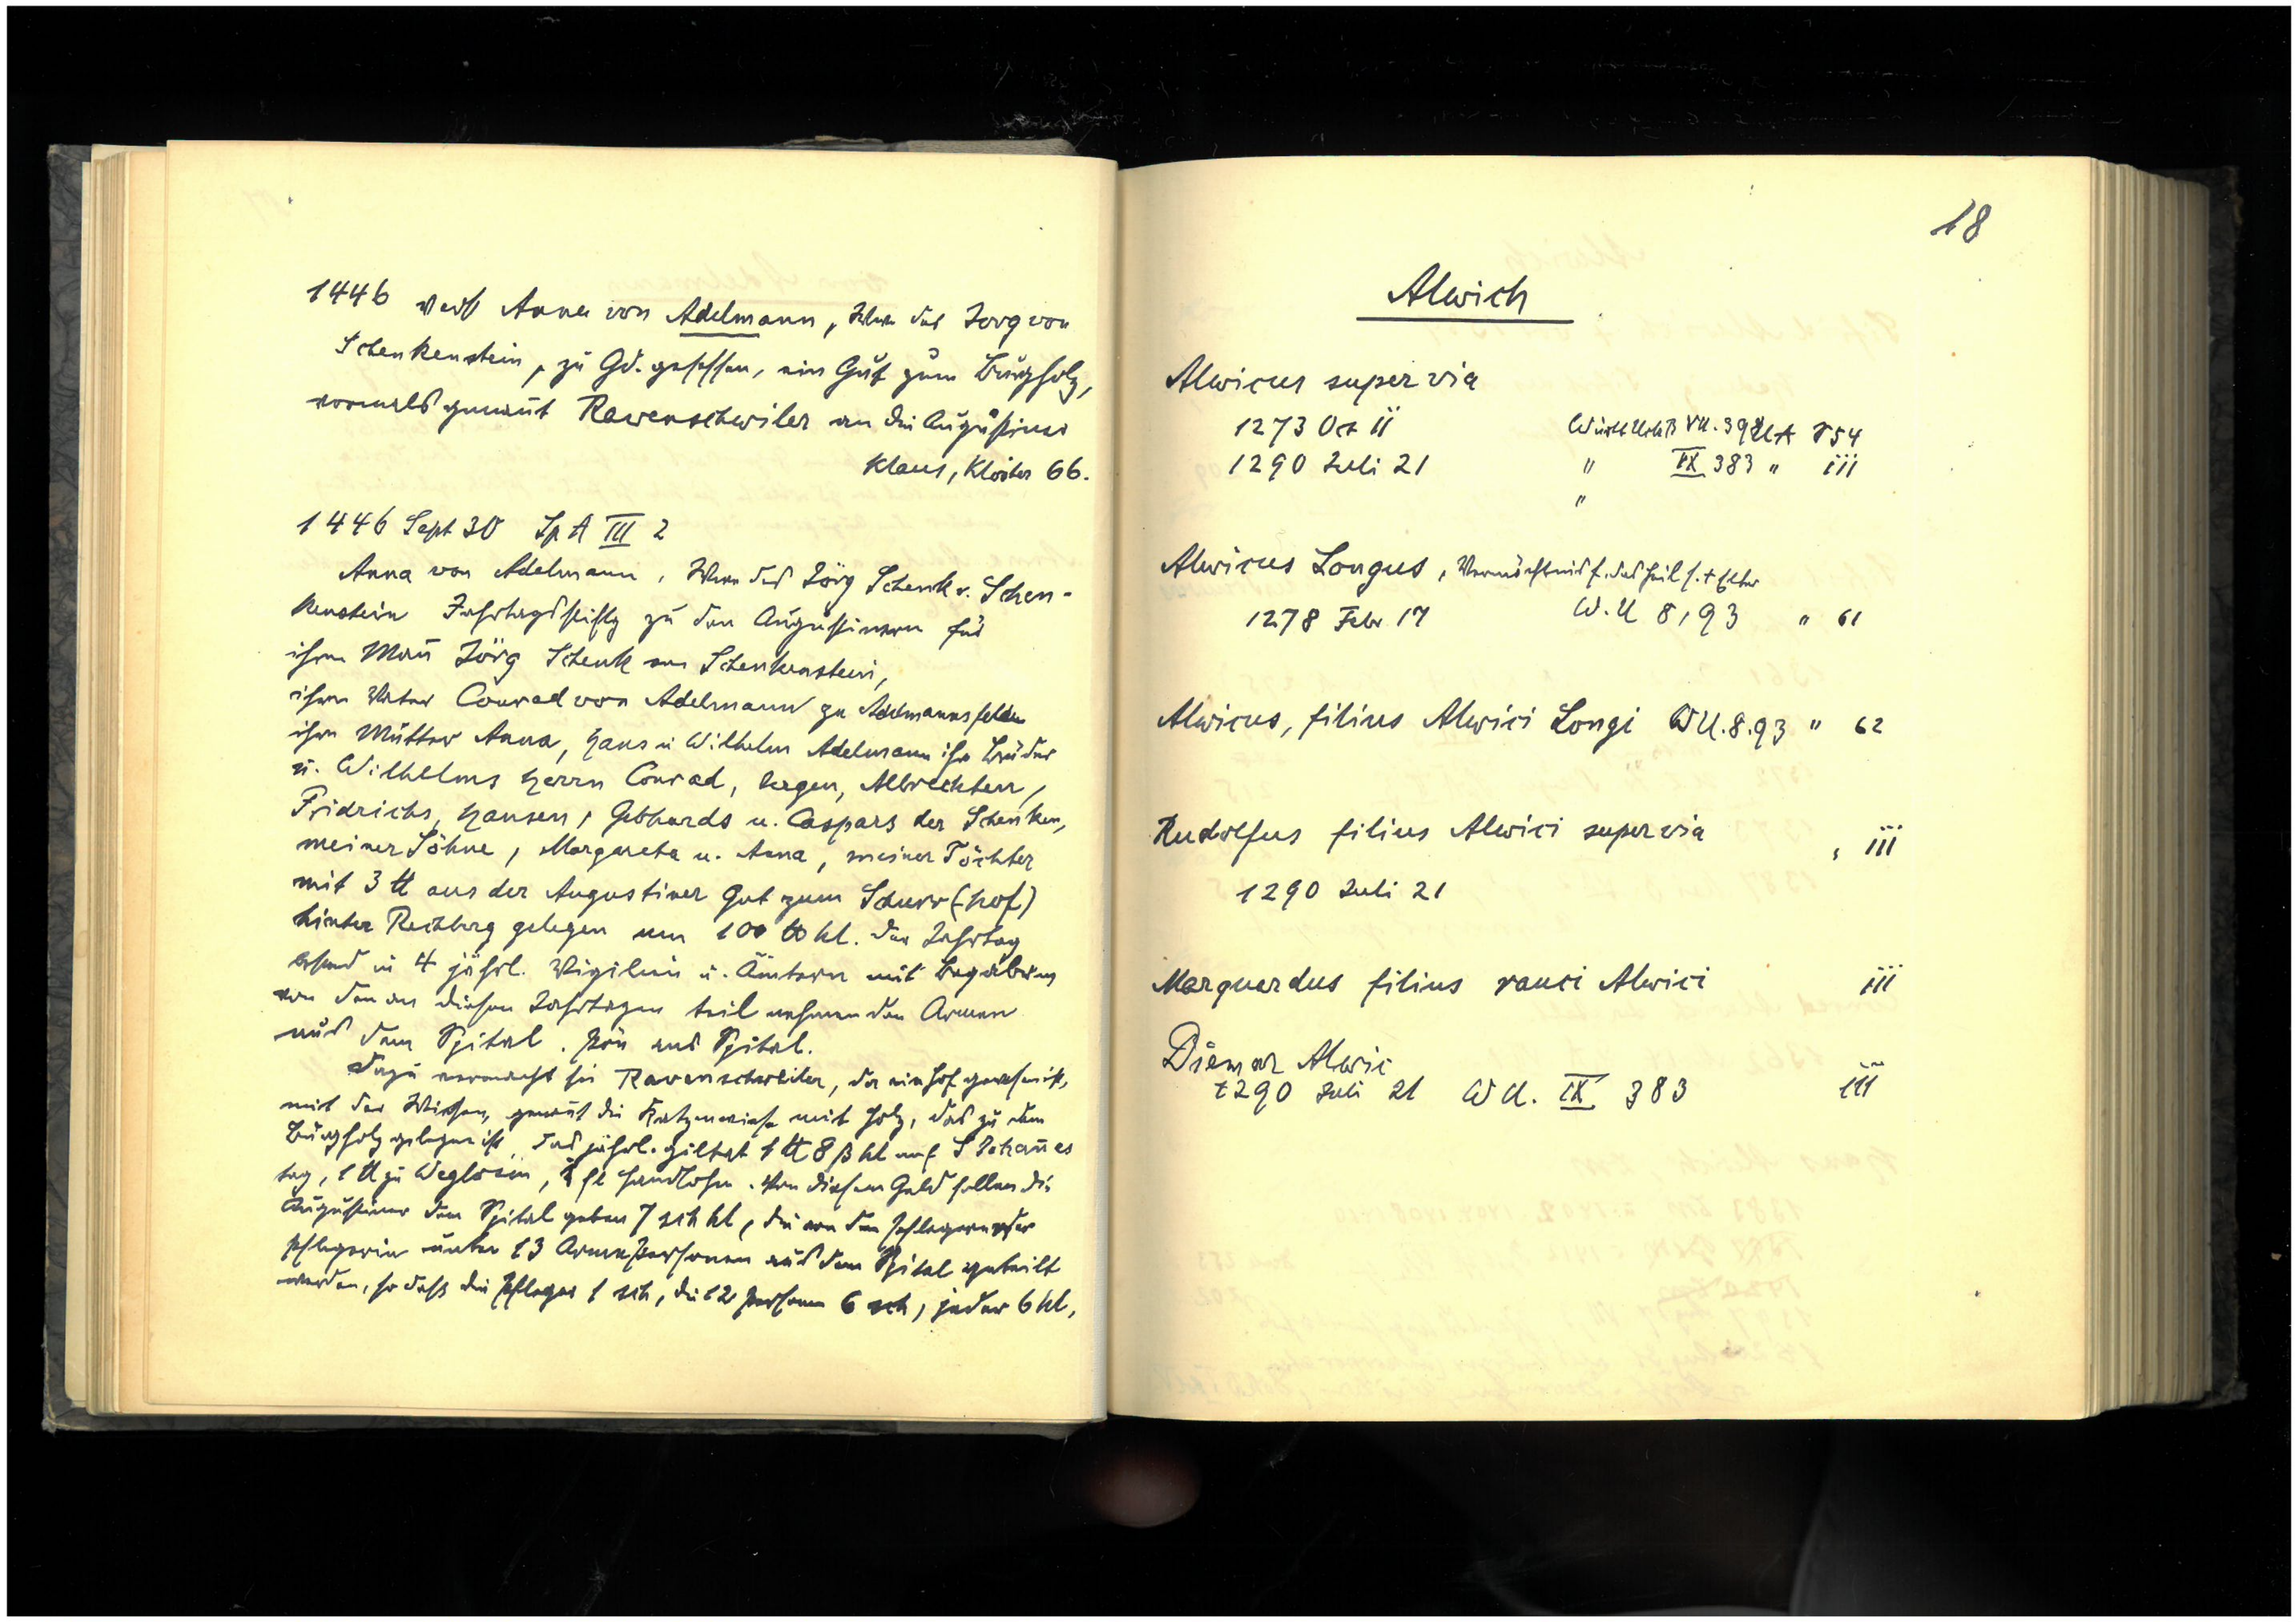 1446 verk Anna von Adelmann, Witwe des Jorg von
Schenkenstein, zu Gd. gesessen, ein Gut zum Burgholz,
vormals genant Ravenschwiler an die Augustiner
Klaus, Klöster 66.
1446 Sept 30 Sp A III 2
Anna von Adelmann, Witwe des Jörg Schenk v. Schen-
kenstein Jahrtagsstiftg zu den Augustinern für
ihren Mañ Jörg Schenk von Schenkenstein,
ihren Vater Conrad von Adelmann zu Adelmannsfelden
ihre Mutter Anna, Hans u Wilhelm Adelmann ihre Brüder
u. Wilhelms Herrn Conrad, Albrechten,
Fridrichs, Hansen, Gebhards u. Caspars der Schenken,
meiner Söhne, Margareta u. Anna, meiner Töchter
mit 3 ℔ aus der Augustiner Gut zum Schurr(hof)
hinter Rechberg gelegen um 100 ℔ hl. Der Jahrtag
in 4 jährl. Vigilien u. Ämtern mit
von den an diesen Jahrtagen teilnehmenden Armen
aus dem Spital. Pön ans Spital.
Dazu vermacht sie Ravenschweiler, da ein Hof gewesen ist,
mit der Wiesen, genañt die Kratzenwiese mit Holz, das zu dem
Burgholz gelegen ist, das jährl. giltet 1 ℔ 8 ß hl auf S Johañes
tag, 1 ℔ zu Weglösin, fl Handlohn. Von diesem Geld sollen die
Augustiner dem Spital geben 7 sch hl, die von den Pflegern oder
Pflegerin unter 13 Arme Personen aus dem Spital geteilt
werden, so daß die Pfleger 1 sch, die 12 Personen 6 sch, jeder 6 hl,
18
Alwich
Alwicus super via
1273 Oct 11 Württ UrkB VII. 392 UA 854
1290 Juli 21 " IX 383 " iii
"
Alwicus Longus, Vermächtnis f. das Heil s. +
1278 Febr 17 W.U 8,93 " 61
Alwicus, filius Alwici Longi WU. 8.93 " 62
Rudolfus filius Alwici super via , iii
1290 Juli 21
Marquardus filius rauci Alwici iii
Diemar Alwic
1290 Juli 21 WU. IX 383 iii